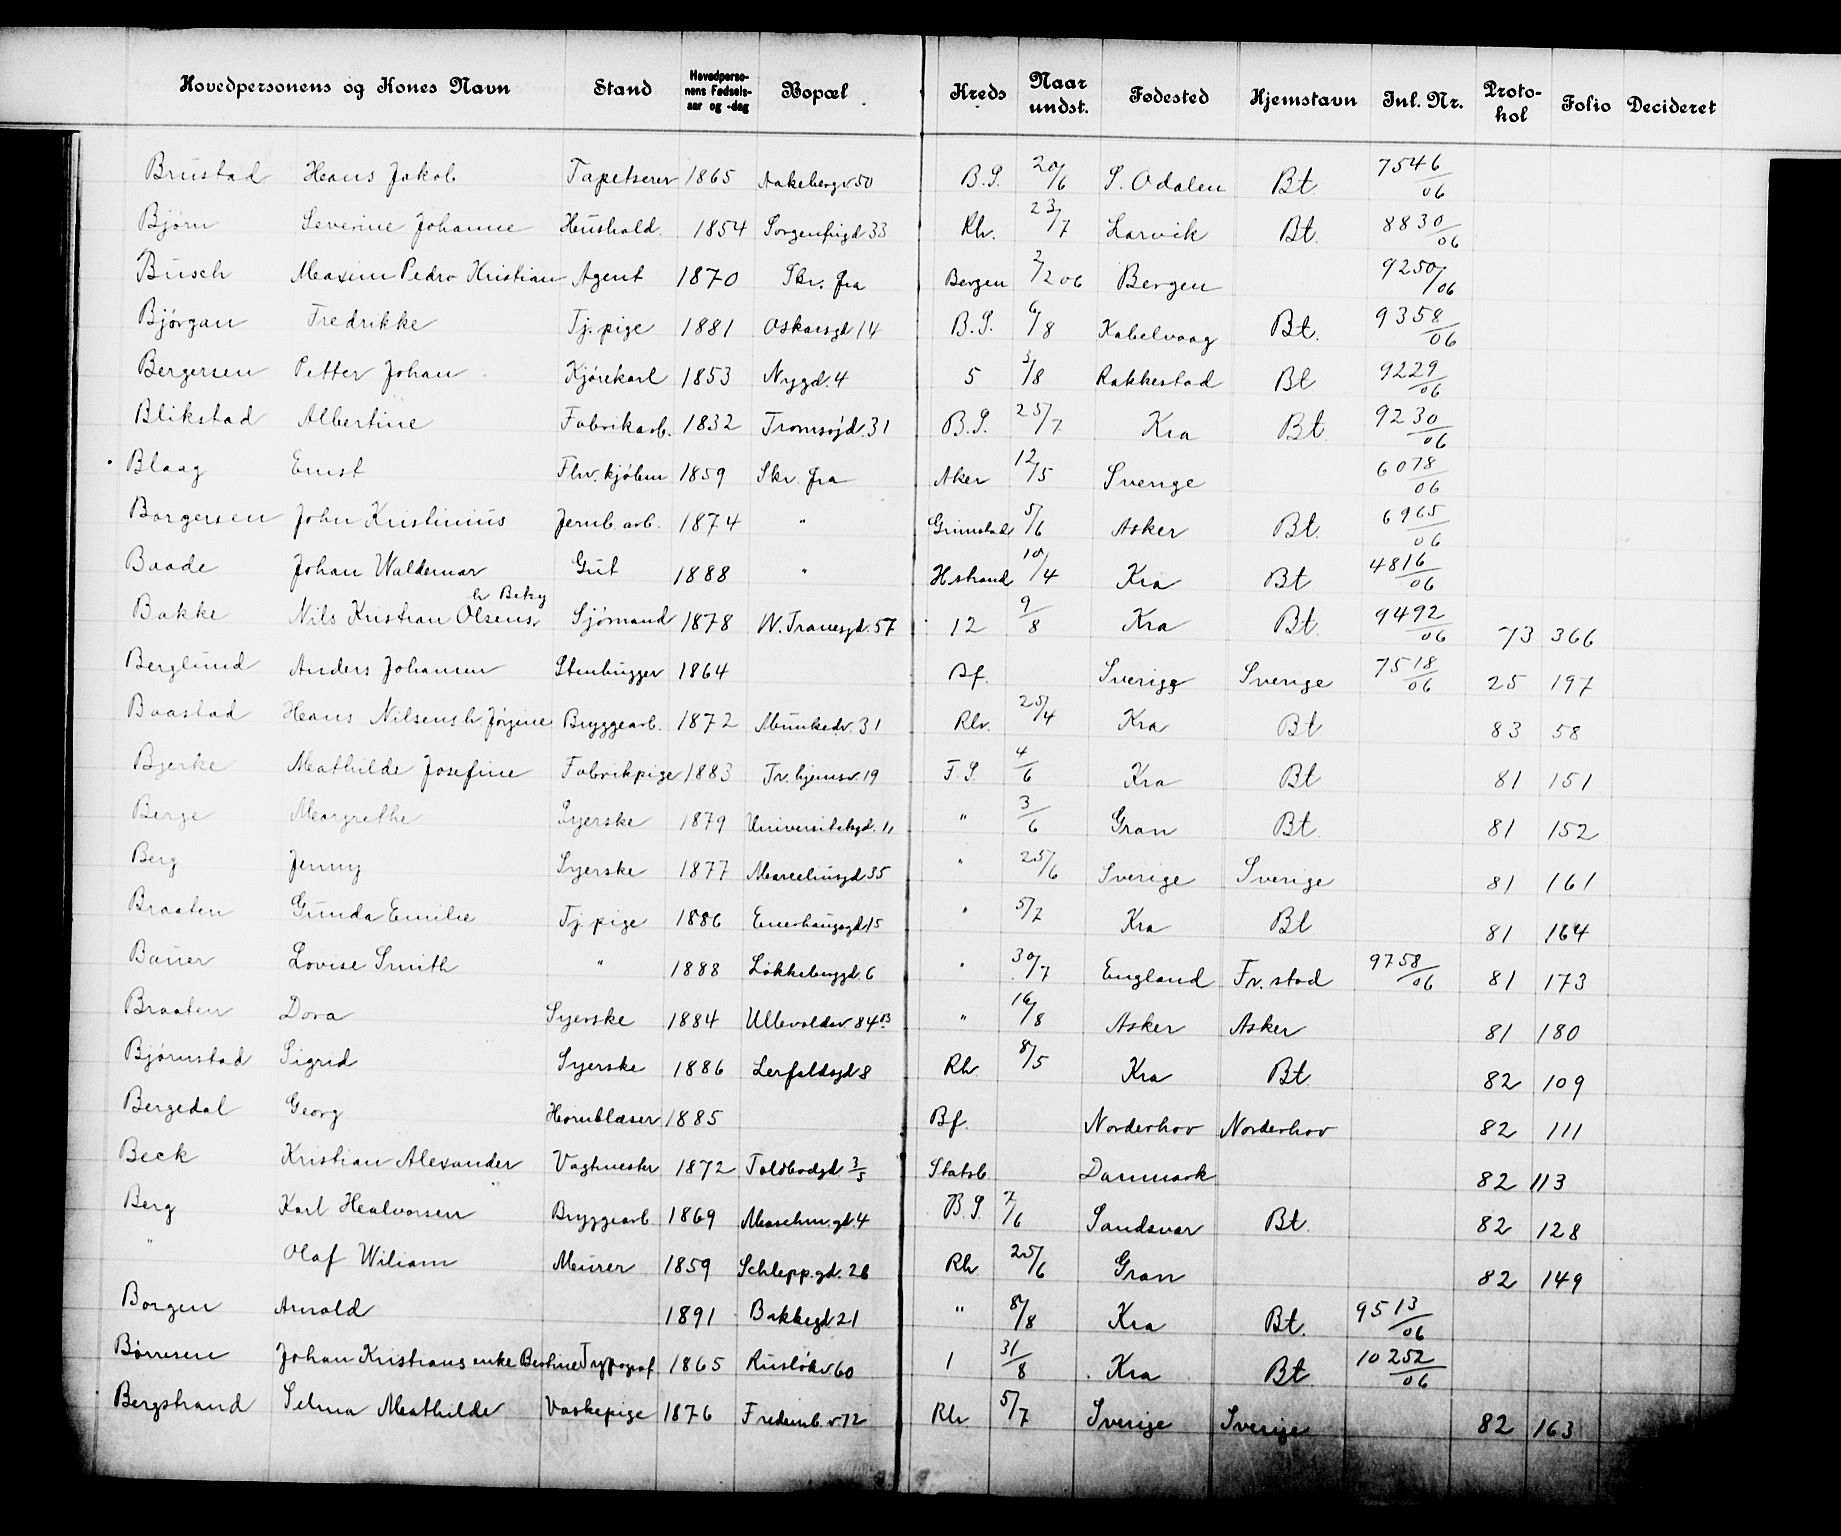 Hovedpersonens og Kones Navn Stand Hovedpersonens Fødselsaar og -dag Bopæl Kreds Naar undst. Fødested Hjemstavn Inl. Nr. Protokol Folio Decideret
Brustad Hans Jakob Tapetserer 1865 Aakebergv 50 B.S. 20/6 S. Odalen Bt. 7546/06
Bjørn Severine Johanne Hushold. 1854 Sorgenfrigd 33 Rh. 23/7 Larvik Bt. 8830/06
Busch Maxim Pedro Kristian Agent 1870 Skr. fra Bergen 2/2 06 Bergen 9250/06
Bjørgan Fredrikke Tj. pige 1881 Oskarsgd 14 B.S. 6/8 Kabelvaag Bt. 9358/06
Bergersen Petter Johan Kjørekarl 1853 Nygd. 4 5 3/8 Rakkestad Bt 9229/06
Blikstad Albertine Fabrikarb. 1832 Tromsøgd. 31 B.S. 25/7 Kra Bt 9230/06
Blaag Ernst Fhv. kjøbm 1859 Skr. fra Aker 12/5 Sverige 6078/06
Borgersen John Kristinius Jernb. arb. 1874 " Grimstad 5/6 Asker Bt. 6965/06
Baade Johan Waldemar Gut 1888 " Hstrand 10/4 Kra Bt 4816/06
Bakke Nils Kristian Olsens h Betzy Sjømand 1878 W. Tranesgd. 57 12 9/8 Kra Bt. 9492/06 73 366
Berglund Anders Johansen Stenhugger 1864 Bf. Sverige Sverige 7518/06 25 197
Baastad Hans Nilsens h Jørgine Bryggearb. 1872 Munkedv. 31 Rh. 25/4 Kra Bt 83 58
Bjerke Mathilde Josefine Fabrikpige 1883 Tv. hjemsv. 19 F.S. 4/6 Kra Bt 81 151
Berge Margrethe Syerske 1879 Universitetsgd. 11 " 3/6 Gran Bt. 81 152
Berg Jenny Syerske 1877 Marcelinsgd 35 " 25/6 Sverige Sverige 81 161
Braaten Gunda Emilie Tj. pige 1886 Enerhaugsgd 15 " 5/7 Kra Bt 81 164
Bauer Lovise Smith " 1888 Løkkebergd. 6 " 30/7 England Fr. stad 9758/06 81 173
Braaten Dora Syerske 1884 Ullevoldsv 84 B " 16/8 Asker Asker 81 180
Bjørnstad Sigrid Syerske 1886 Lerfaldsgd 8 Rh 8/5 Kra Bt 82 109
Bergedal Georg Hornblæser 1885 Bf. Norderhov Norderhov 82 111
Beck Kristian Alexander Vagtmester 1872 Toldbodgd 3/5 Statsb Danmark 82 113
Berg Karl Halvorsen Bryggearb 1869 Maschin. gd. 4 B.S. 7/6 Sandsvær Bt. 82 128
" Olaf Wiliam Murer 1859 Schlepp. gd. 26 Rh 25/6 Gran 82 149
Borgen Arnold 1891 Bakkegd 21 " 8/8 Kra Bt. 9513/06
Børresen Johan Kristians enke Berthine Typograf 1865 Ruseløkv. 60 1 31/8 Kra Bt. 10252/06
Bergstrand Selma Mathilde Vaskepige 1876 Fredensb. v 12 Rh 5/7 Sverige Sverige 82 163